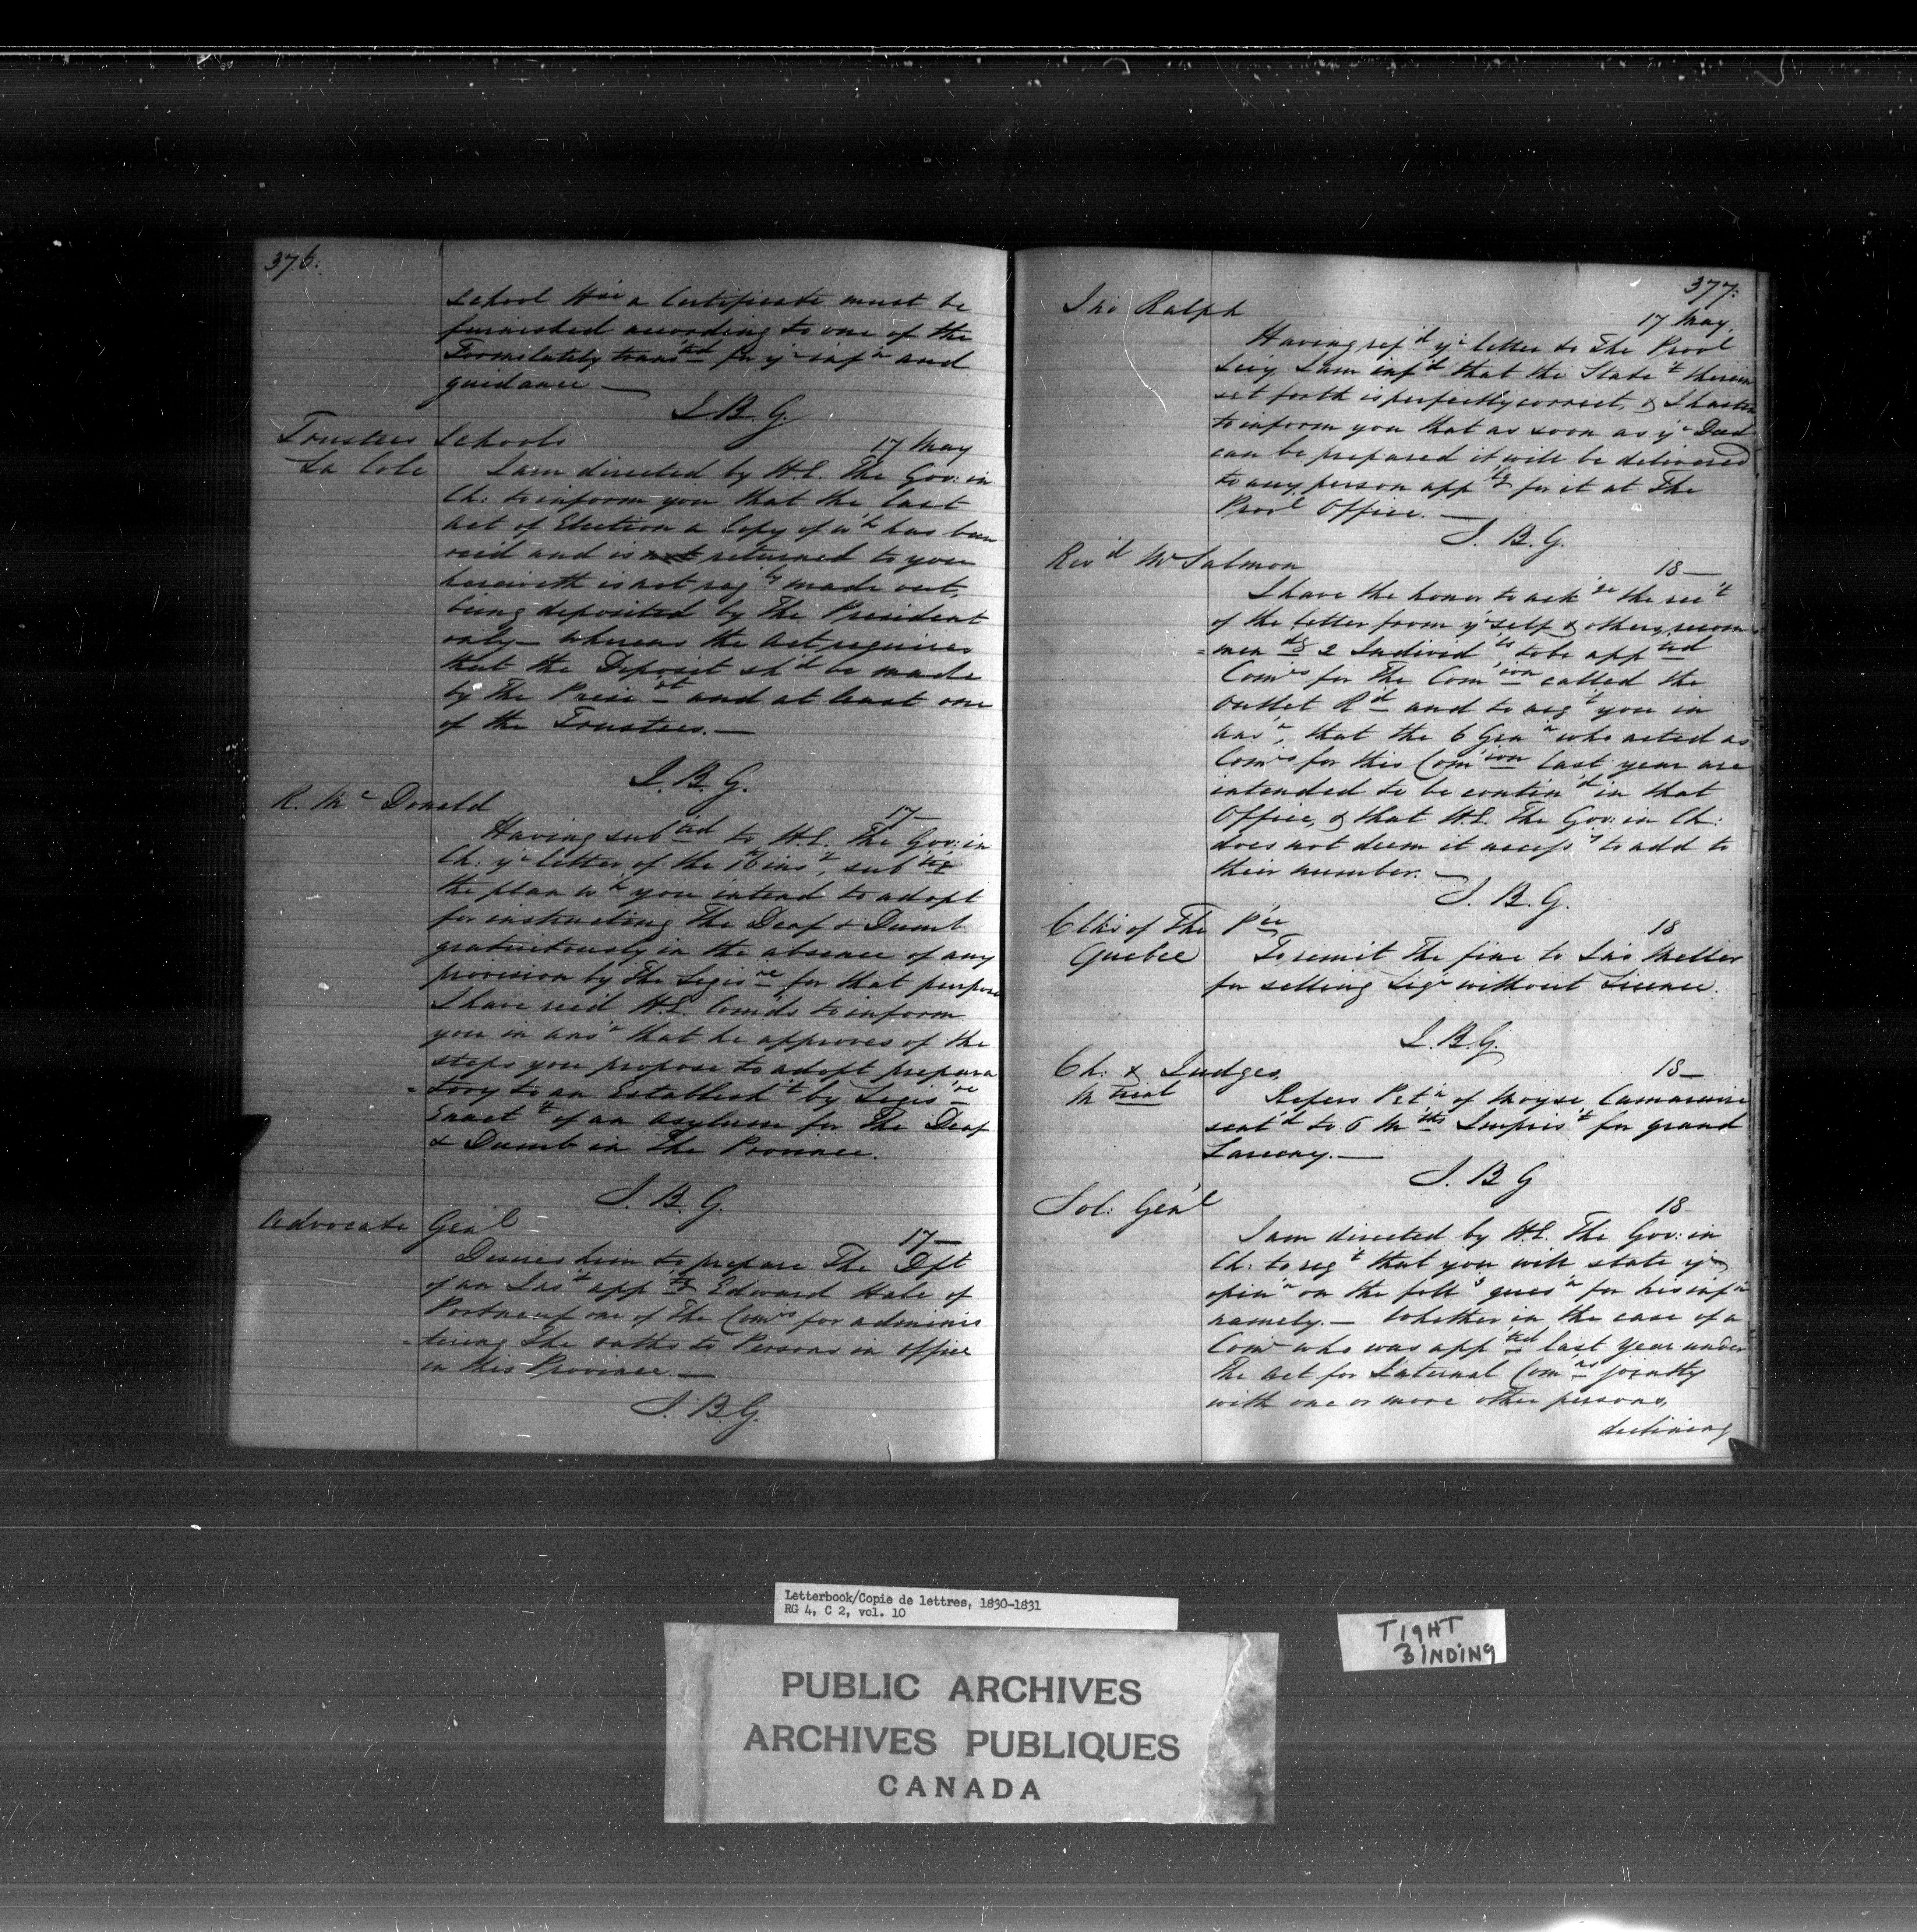 376.
school Hse a Certificate must be
furnished according to one of the
Forms lately transted for yr infn and
guidance —
J. B. G.
Trustees Schools
17 May
La Cole
I am directed by H.E. The Gov: in
Ch: to inform you that the last
Act of Election a Copy of wh has been
recd and is not returned to you
herewith is not regly made out,
being deposited by The President
only — whereas the Act requires
that the Deposit shd be made
by The Presidt and at least one
of the Trustees. —
J. B. G.
R. Mc Donald
17 —
Having subted to H.E. The Gov: in
Ch: yr letter of the 16 inst, subtg
the plan wh you intend to adopt
for instructing The Deaf & Dumb
gratuitously in the absence of any
provision by The Legisre for that purpose
I have recd H.E. Comds to inform
you in ansr that he approves of the
steps you propose to adopt prepara
= tory to an Establisht by Legisre
Enactt of an Asylum for The Deaf
& Dumb in The Province.
J. B. G.
Advocate Genl
17 —
Desires him to prepare The Dft
of an Inst apptg Edward Hale of
Portneuf one of The Comrs for adminis
= tering The oaths to Persons in office
in this Province. —
J. B. G.
377.
Jno Ralph
17 May.
Having refd yr letter to The Provl
Secy I am infd that the Statet therein
set forth is perfectly correct, & I hasten
to inform you that as soon as yr Deed
can be prepared it will be delivered
to any person apptg for it at The
Provl Office. —
J. B. G.
Revd Mr Salmon
18 —
I have the honor to ackge the rect
of the letter from yrself & others, recom
= mendg 2 Individls to be appted
Comrs for The Comion called the
Outlet Rd and to acqt you in
ansr, that the 6 Genn who acted as
Comrs for this Comion last year are
intended to be contind in that
Office, & that H.E. The Gov: in Ch:
does not deem it necessy to add to
their number. —
J. B. G.
Clks of The Pce
18
Quebec
To remit The fine to Jas
for selling Liqr without Licence.
J. B. G.
Ch: & Judges
18 —
Mtreal
Refers Petn of Moyse
sentd to 6 Mths Imprist for grand
Larceny. —
J. B G
Sol: Genl
18
I am directed by H.E. The Gov: in
Ch: to reqt that you will state yr
opinn on the follg quesn for his infn
namely. — Whether in the case of a
Comr who was appted last year under
The Act for Internal Comns jointly
with one or more other persons,
declining
Letterbook/Copie de lettres, 1830-1831
RG 4, C 2, vol. 10
TIGHT
BINDING
PUBLIC ARCHIVES
ARCHIVES PUBLIQUES
CANADA